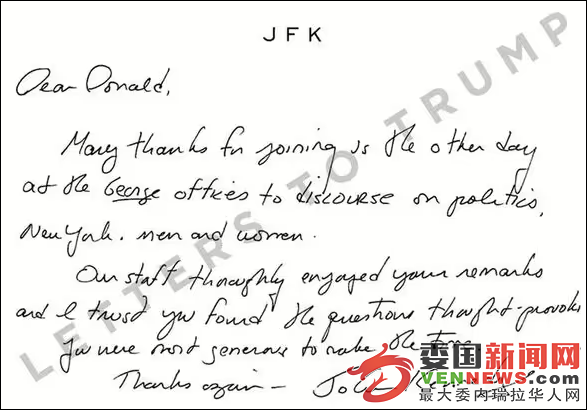 JFK
Dear Donald,
Many thanks for joining us the other day
at the George offices to discourse on politics,
New York, men and women.
Our staff thoroughly enjoyed your remarks
and I trust you found the questions thought-provoking
You were most generous to make the time
Thanks again - John
LETTERS TO TRUMP
委国新闻网
VENNEWS.COM
最大委内瑞拉华人网